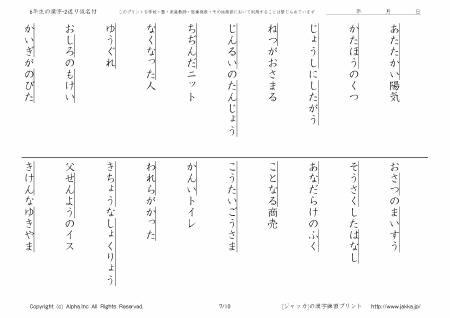 6年生の漢字-2送り仮名付
このプリントを学校・塾・家庭教師・医療機関・その他施設において利用することは禁じられています
年 月 日
あたたかい陽気
かたほうのくつ
じょうしにしたがう
ねつがおさまる
じんるいのたんじょう
ちぢんだニット
なくなった人
ゆうぐれ
おしろのもけい
かいぎがのびた
おさつのまいすう
そうさくしたはなし
あなだらけのふく
ことなる商売
こうたいごうさま
かんいトイレ
われらがかった
きちょうなしょくりょう
父せんようのイス
きけんなゆきやま
Copyright (c) Alpha.Inc All Rights Reserved.
7/10
[ジャッカ]の漢字練習プリント http://www.jakka.jp/